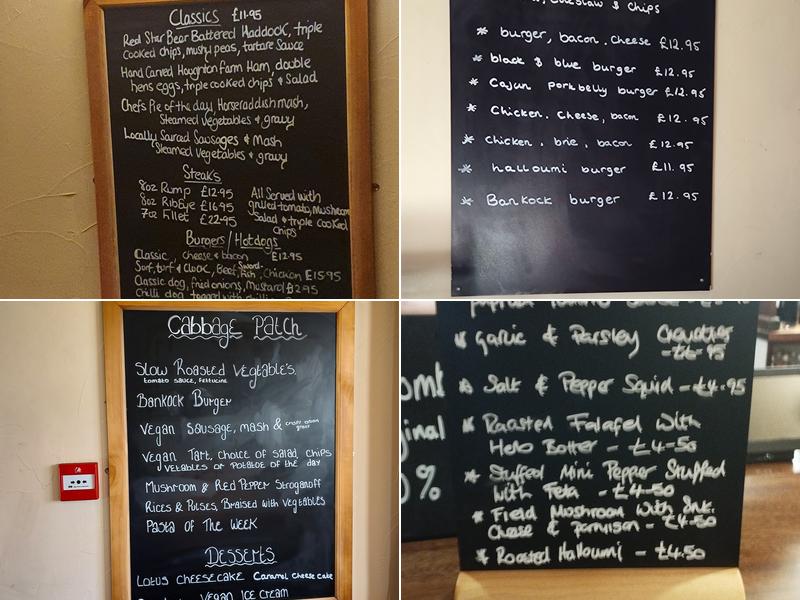 Classics £11.95
Red Star Beer Battered Haddock, triple
cooked chips, mushy peas, tartare Sauce
Hand Carved Houghton farm Ham, double
hens eggs, triple cooked chips & Salad
Chefs Pie of the day, Horseraddish mash,
Steamed vegetables & gravy
Locally Sourced Sausages & Mash
Steamed vegetables & gravy
Steaks
8oz Rump £12.95
8oz RibEye £16.95
7oz Fillet £22.95
All Served with
grilled tomato, mushroom
Salad & triple cooked
chips
Burgers/Hotdogs
Classic, cheese & bacon £12.95
Surf, turf & cluck, Beef, Sword-
Fish, Chicken £15.95
Classic dog, fried onions, Mustard £12.95
Chilli dog, topped with chilli
& Chips
* burger, bacon, cheese £12.95
* black & blue burger £12.95
* Cajun porkbelly burger £12.95
* Chicken, Cheese, bacon £12.95
* chicken, brie, bacon £12.95
* halloumi burger £11.95
* Bankock burger £12.95
Cabbage Patch
Slow Roasted Vegtable's.
tomato sauce, fettucine
Bankock Burger
Vegan Sausage, mash & crispy onion
gravy
Vegan Tart, choice of salad, chips
vetables or potatoe of the day
Mushroom & Red Pepper Stroganoff
Rices & Pulses, Braised with Vegtables
Pasta of the Week
Desserts
Lotus Cheesecake Caramel Cheesecake
Vegan Ice cream
* Garlic & Parsley
* Salt & Pepper Squid - £4.95
* Roasted Falafel With
Herb Botter - £4-50
* Stuffed Mini Pepper Stuffed
With Feta - £4-50
* Field Mushroom With
Cheese & - £4-50
* Roasted Halloumi - £4.50
ginal
0%